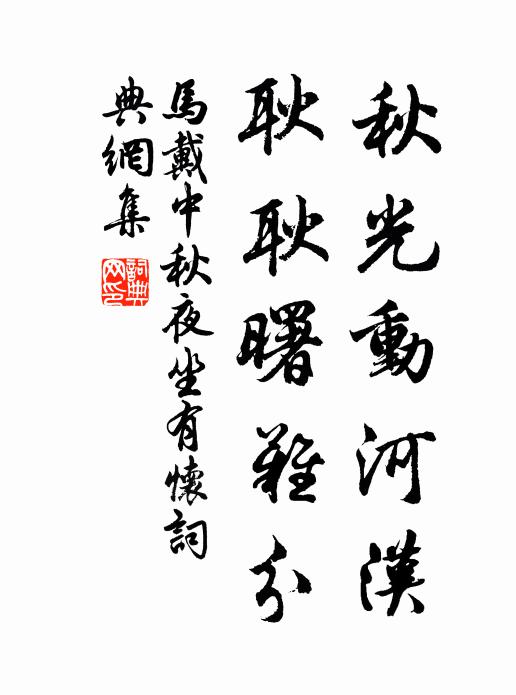 秋光動河漢
耿耿曙難分
馬戴中秋夜坐有懷詞
典網集
詞典
网印